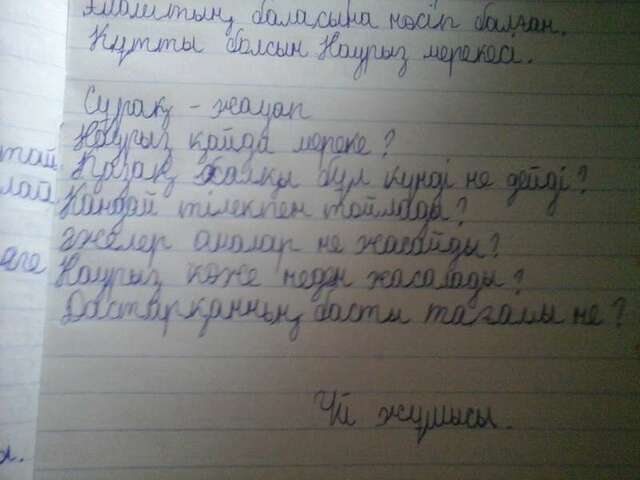 Алаштың баласына нәсіп болған.
Құтты болсын Наурыз мерекесі.
Сұрақ - жауап
Наурыз қайда мереке?
той Қазақ халқы бұл күнді не дейді?
лай Қандай тілекпен тойлады?
әжелер аналар не жасайды?
Наурыз көже неден жасалады?
Дастарқанның басты тағамы не?
Үй жұмысы.